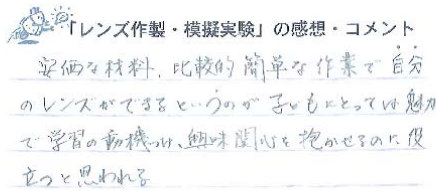 「レンズ作製・模擬実験」の感想・コメント
安価な材料、比較的簡単な作業で自分
のレンズができるというのが子どもにとっては魅力
で学習の動機づけ、興味関心を抱かせるのに役
立つと思われる